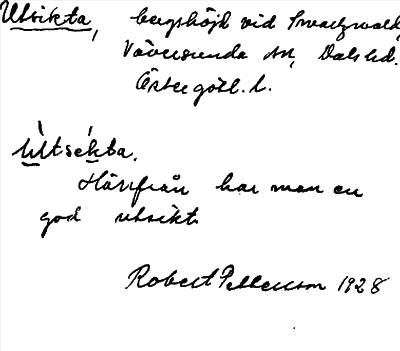 Utsikta, bergshöjd vid Svartzwald,
Väversunda sn, Dals hd.
Östergötl. l.
Ùtsékta.
Härifrån har man en
god utsikt
Robert Pettersson 1928